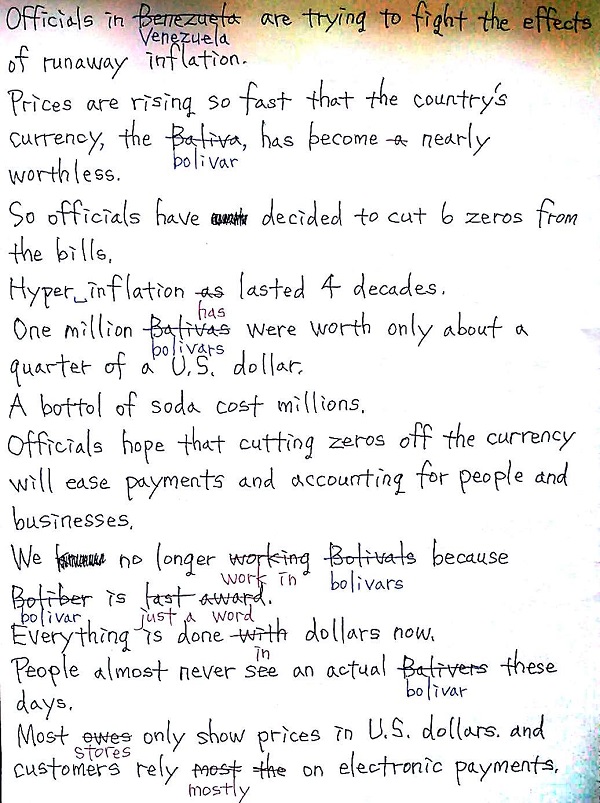 Officials in Benezuela are trying to fight the effects
Venezuela
of runaway inflation.
Prices are rising so fast that the country's
currency, the Baliva, has become a nearly
bolivar
worthless.
So officials have decided to cut 6 zeros from
the bills.
Hyper inflation as lasted 4 decades.
has
One million Balivas were worth only about a
bolivars
quarter of a U.S. dollar.
A bottol of soda cost millions.
Officials hope that cutting zeros off the currency
will ease payments and accounting for people and
businesses.
We no longer working Bolivals because
work in bolivars
Boliber is last award.
bolivar just a word
Everything is done with dollars now.
in
People almost never see an actual Balivers these
bolivar
days.
Most owes only show prices in U.S. dollars. and
stores
customers rely most the on electronic payments.
mostly